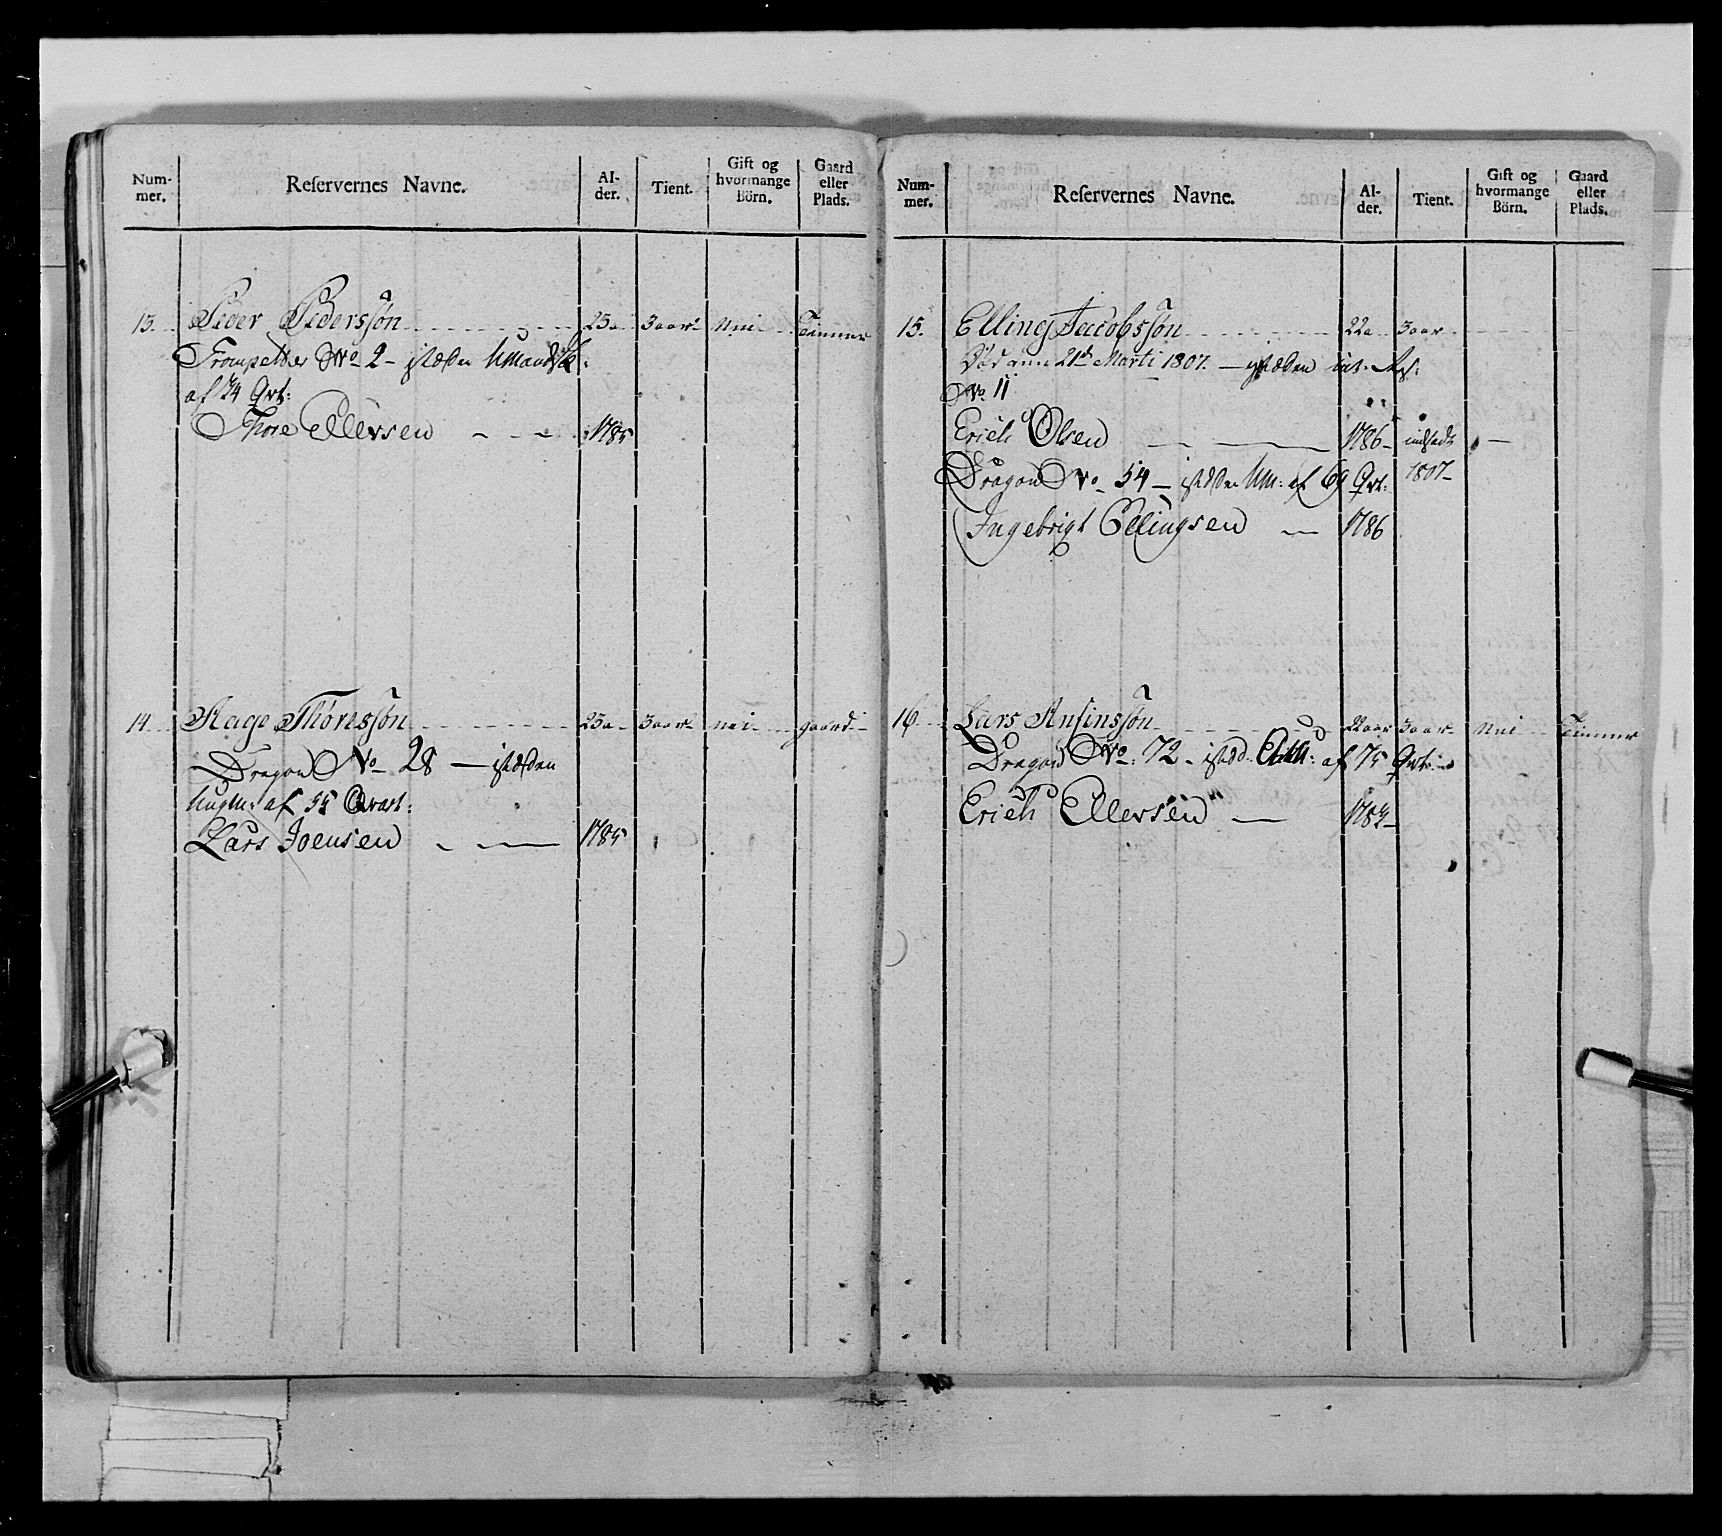 Num-
mer.
Reservernes Navne.
Al-
der.
Tient.
Gift og
hvormange
Börn.
Gaard
eller
Plads.
13. Peder Pedersøn 23a 3 aar nei Tømmer
Trompetter No 2 - istæden
af 74 Qvt:
Thore Ellersen 1785
14 Aage Thoressøn 23a 3 aar nei gaard
Dragon No 28 — istæden
af 55 Qvart:
Lars Joensen 1785
Num-
mer.
Reservernes Navne.
Al-
der.
Tient.
Gift og
hvormange
Börn.
Gaard
eller
Plads.
15. Elling Jacobssøn 22a 3 aar
Død den 21de Marti 1807. — istæden
No 11
Erich Olsen 1786 indsadt
Dragon No 54 — istæden af 69 Qvt: 1807
Ingebrigt Ellingsen 1786
16 Lars Ansinssøn 22 aar 3 aar nei Tømmer
Dragon No: 72 - istæd. af 75 Qvt:
Erich Ellersen